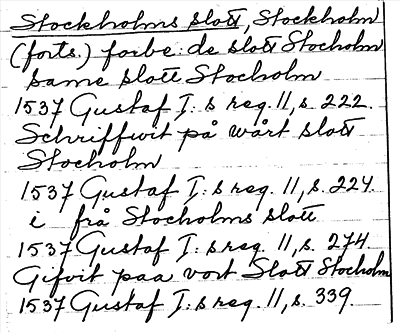 Stockholms slott, Stockholm
(forts.) forbe. de slott Stocholm
same slott Stocholm
1537 Gustaf I:s reg. 11, s. 222.
Schriffwit på wårt slott
Stocholm
1537 Gustaf I:s reg. 11, s. 224.
i frå Stocholms slott
1537 Gustaf I:s reg. 11, s. 274.
Gifvit paa vort Slott Stocholm
1537 Gustaf I:s reg. 11, s. 339.